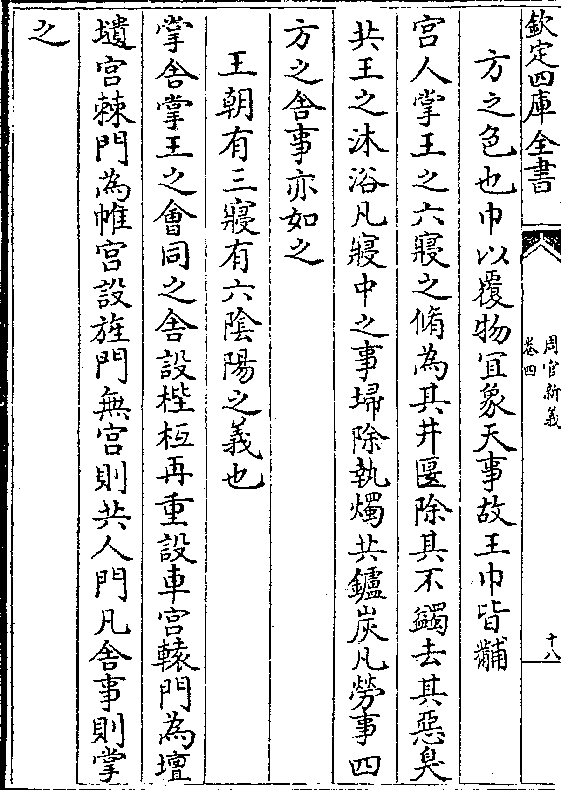 欽定四庫全書
周官新義
卷四
十八
方之色也巾以覆物宜象天事故王巾皆黼
宮人掌王之六寢之脩為其井匽除其不蠲去其惡臭
共王之沐浴凡寢中之事埽除執燭共鑪炭凡勞事四
方之舍事亦如之
王朝有三寢有六陰陽之義也
掌舍掌王之會同之舍設梐枑再重設車宮轅門為壇
壝宮棘門為帷宮設旌門無宮則共人門凡舍事則掌
之